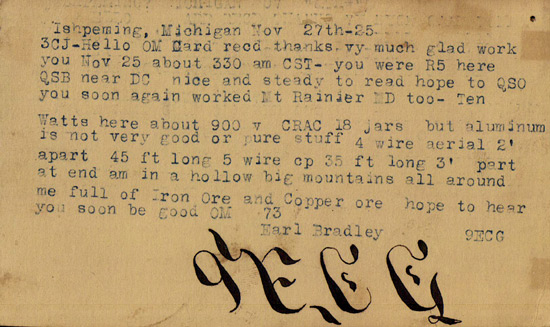 Ishpeming, Michigan Nov 27th-25
3CJ-Hello OM Card recd thanks vy much glad work
you Nov 25 about 330 am CST- you were R5 here
QSB near DC nice and steady to read hope to QSO
you soon again worked Mt Rainier MD too- Ten
Watts here about 900 v CRAC 18 jars but aluminum
is not very good or pure stuff 4 wire aerial 2'
apart 45 ft long 5 wire cp 35 ft long 3' part
at end am in a hollow big mountains all around
me full of Iron Ore and Copper ore hope to hear
you soon be good OM 73
Earl Bradley 9ECG
9ECG